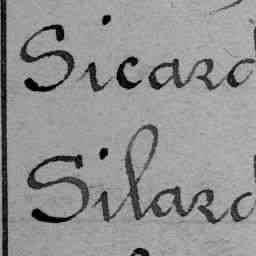 Sicard
Silard